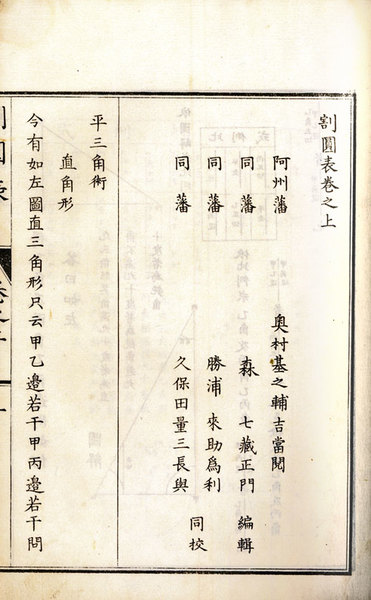 割圓表卷之上
阿州藩 奧村基之輔吉當閱
同藩 森七藏正門 編輯
同藩 勝浦來助爲利
同藩 久保田量三長與 同校
平三角術
直角形
今有如左圖直三角形只云甲乙邊若干甲丙邊若干問